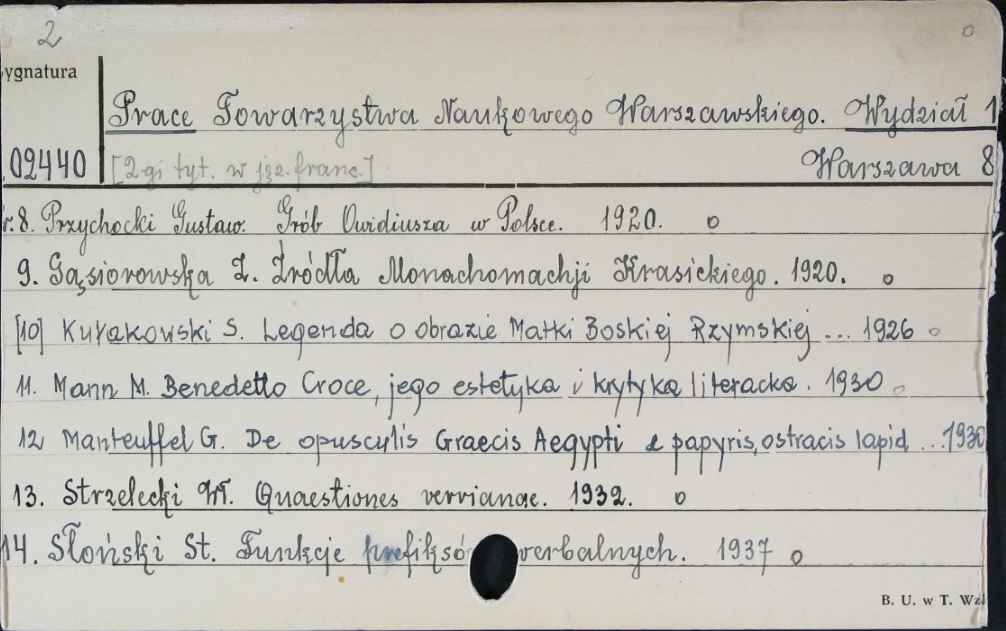 2 o
ygnatura
Prace Towarzystwa Naukowego Warszawskiego. Wydział 1
09440 [2-gi tyt. w jęz. franc.] Warszawa 8
r. 8. Przychocki Gustaw. Grób Owidiusza w Polsce. 1920. o
9. Gąsiorowska Z. Źródła Monachomachji Krasickiego. 1920. o
[10] Kułakowski S. Legenda o obrazie Matki Boskiej Rzymskiej ... 1926 o
11. Mann M. Benedetto Croce, jego estetyka i krytyka literacka. 1930 o
12 Manteuffel G. De opusculis Graecis Aegypti e papyris, ostracis lapid ... 1930
13. Strzelecki Wł. Quaestiones verrianae. 1932. o
14. Słoński St. Funkcje prefiksó verbalnych. 1937 o
B. U. w T. Wz